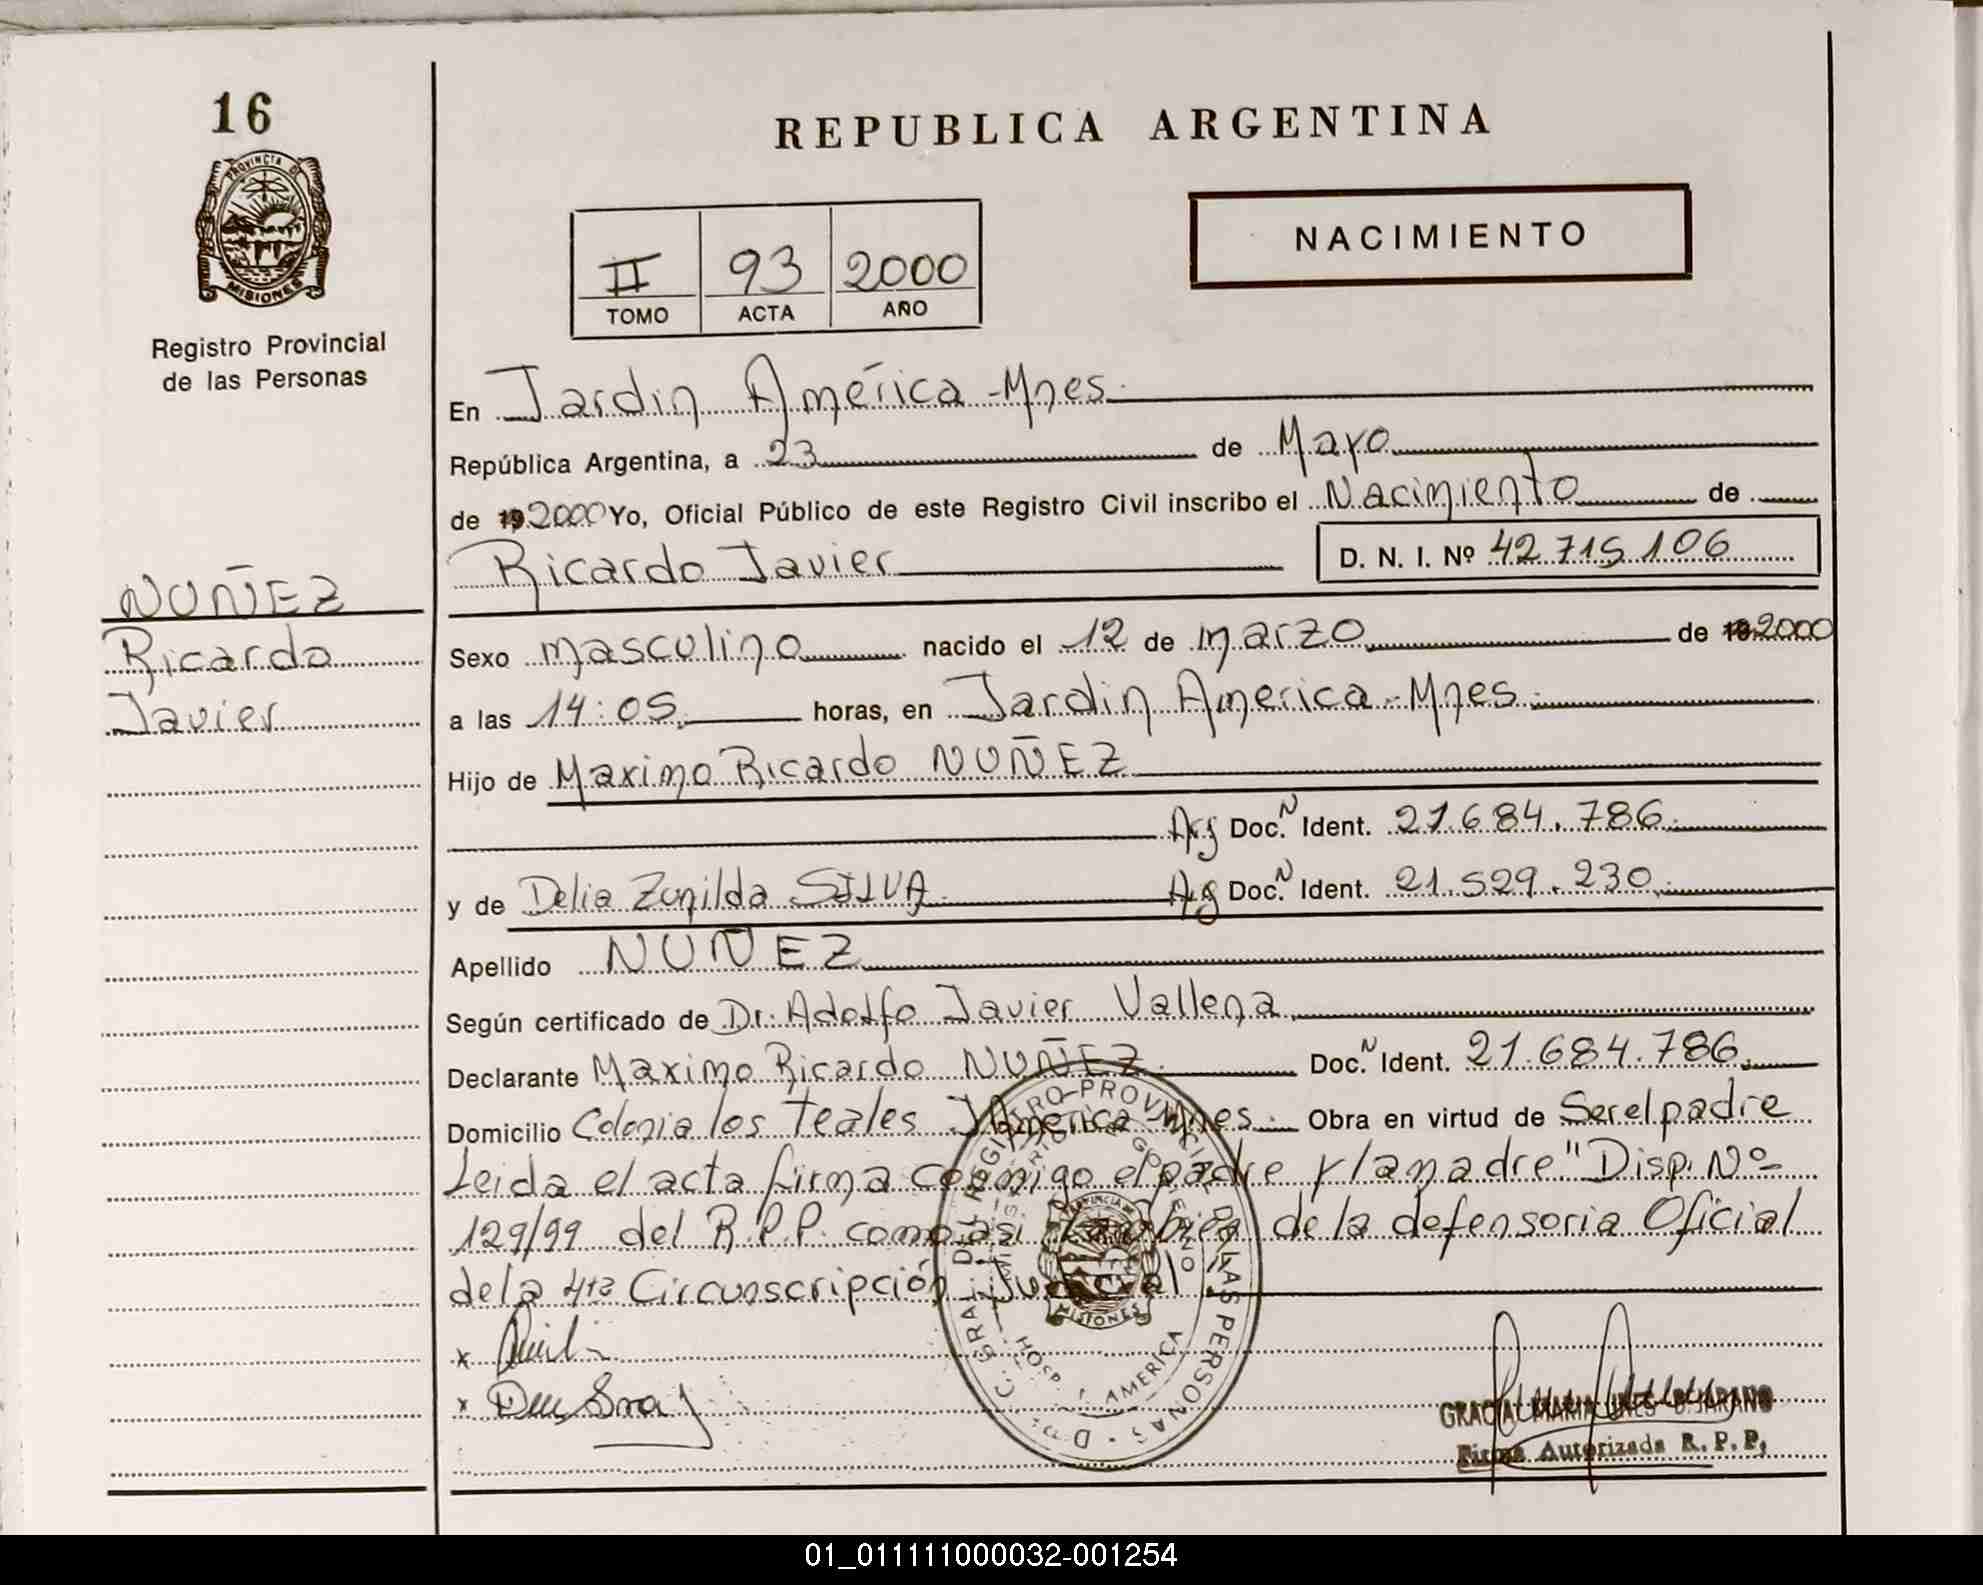 16
REPUBLICA ARGENTINA
PROVINCIA DE
MISIONES
NACIMIENTO
II 93 2000
TOMO ACTA AÑO
Registro Provincial
de las Personas
En Jardin América - Mnes.
República Argentina, a 23 de Mayo
de 192000 Yo, Oficial Público de este Registro Civil inscribo el Nacimiento de
Ricardo Javier D. N. I. Nº 42 715 106
NUÑEZ
Ricardo
Javier
Sexo masculino nacido el 12 de marzo de 192000
a las 14:05 horas, en Jardin America - Mnes.
Hijo de Maximo Ricardo NUÑEZ
Arg Doc. N Ident. 21.684.786.
y de Delia Zunilda SILVA Arg Doc. N Ident. 21.529.230.
Apellido NUÑEZ
Según certificado de Dr. Adolfo Javier Vallena
Declarante Maximo Ricardo NUÑEZ Doc. N Ident. 21.684.786.
Domicilio Colonia los Teales J America - Mnes. Obra en virtud de Ser el padre
Leida el acta firma conmigo el padre y la madre "Disp. Nº
129/99 del R.P.P. como asi tambien de la defensoria Oficial
de la 4ta Circunscripción Judicial"
x
x
REGISTRO PROVINCIAL DE LAS PERSONAS
HOSP. J. AMERICA
MISIONES
Firma Autorizada R. P. P.
01_011111000032-001254